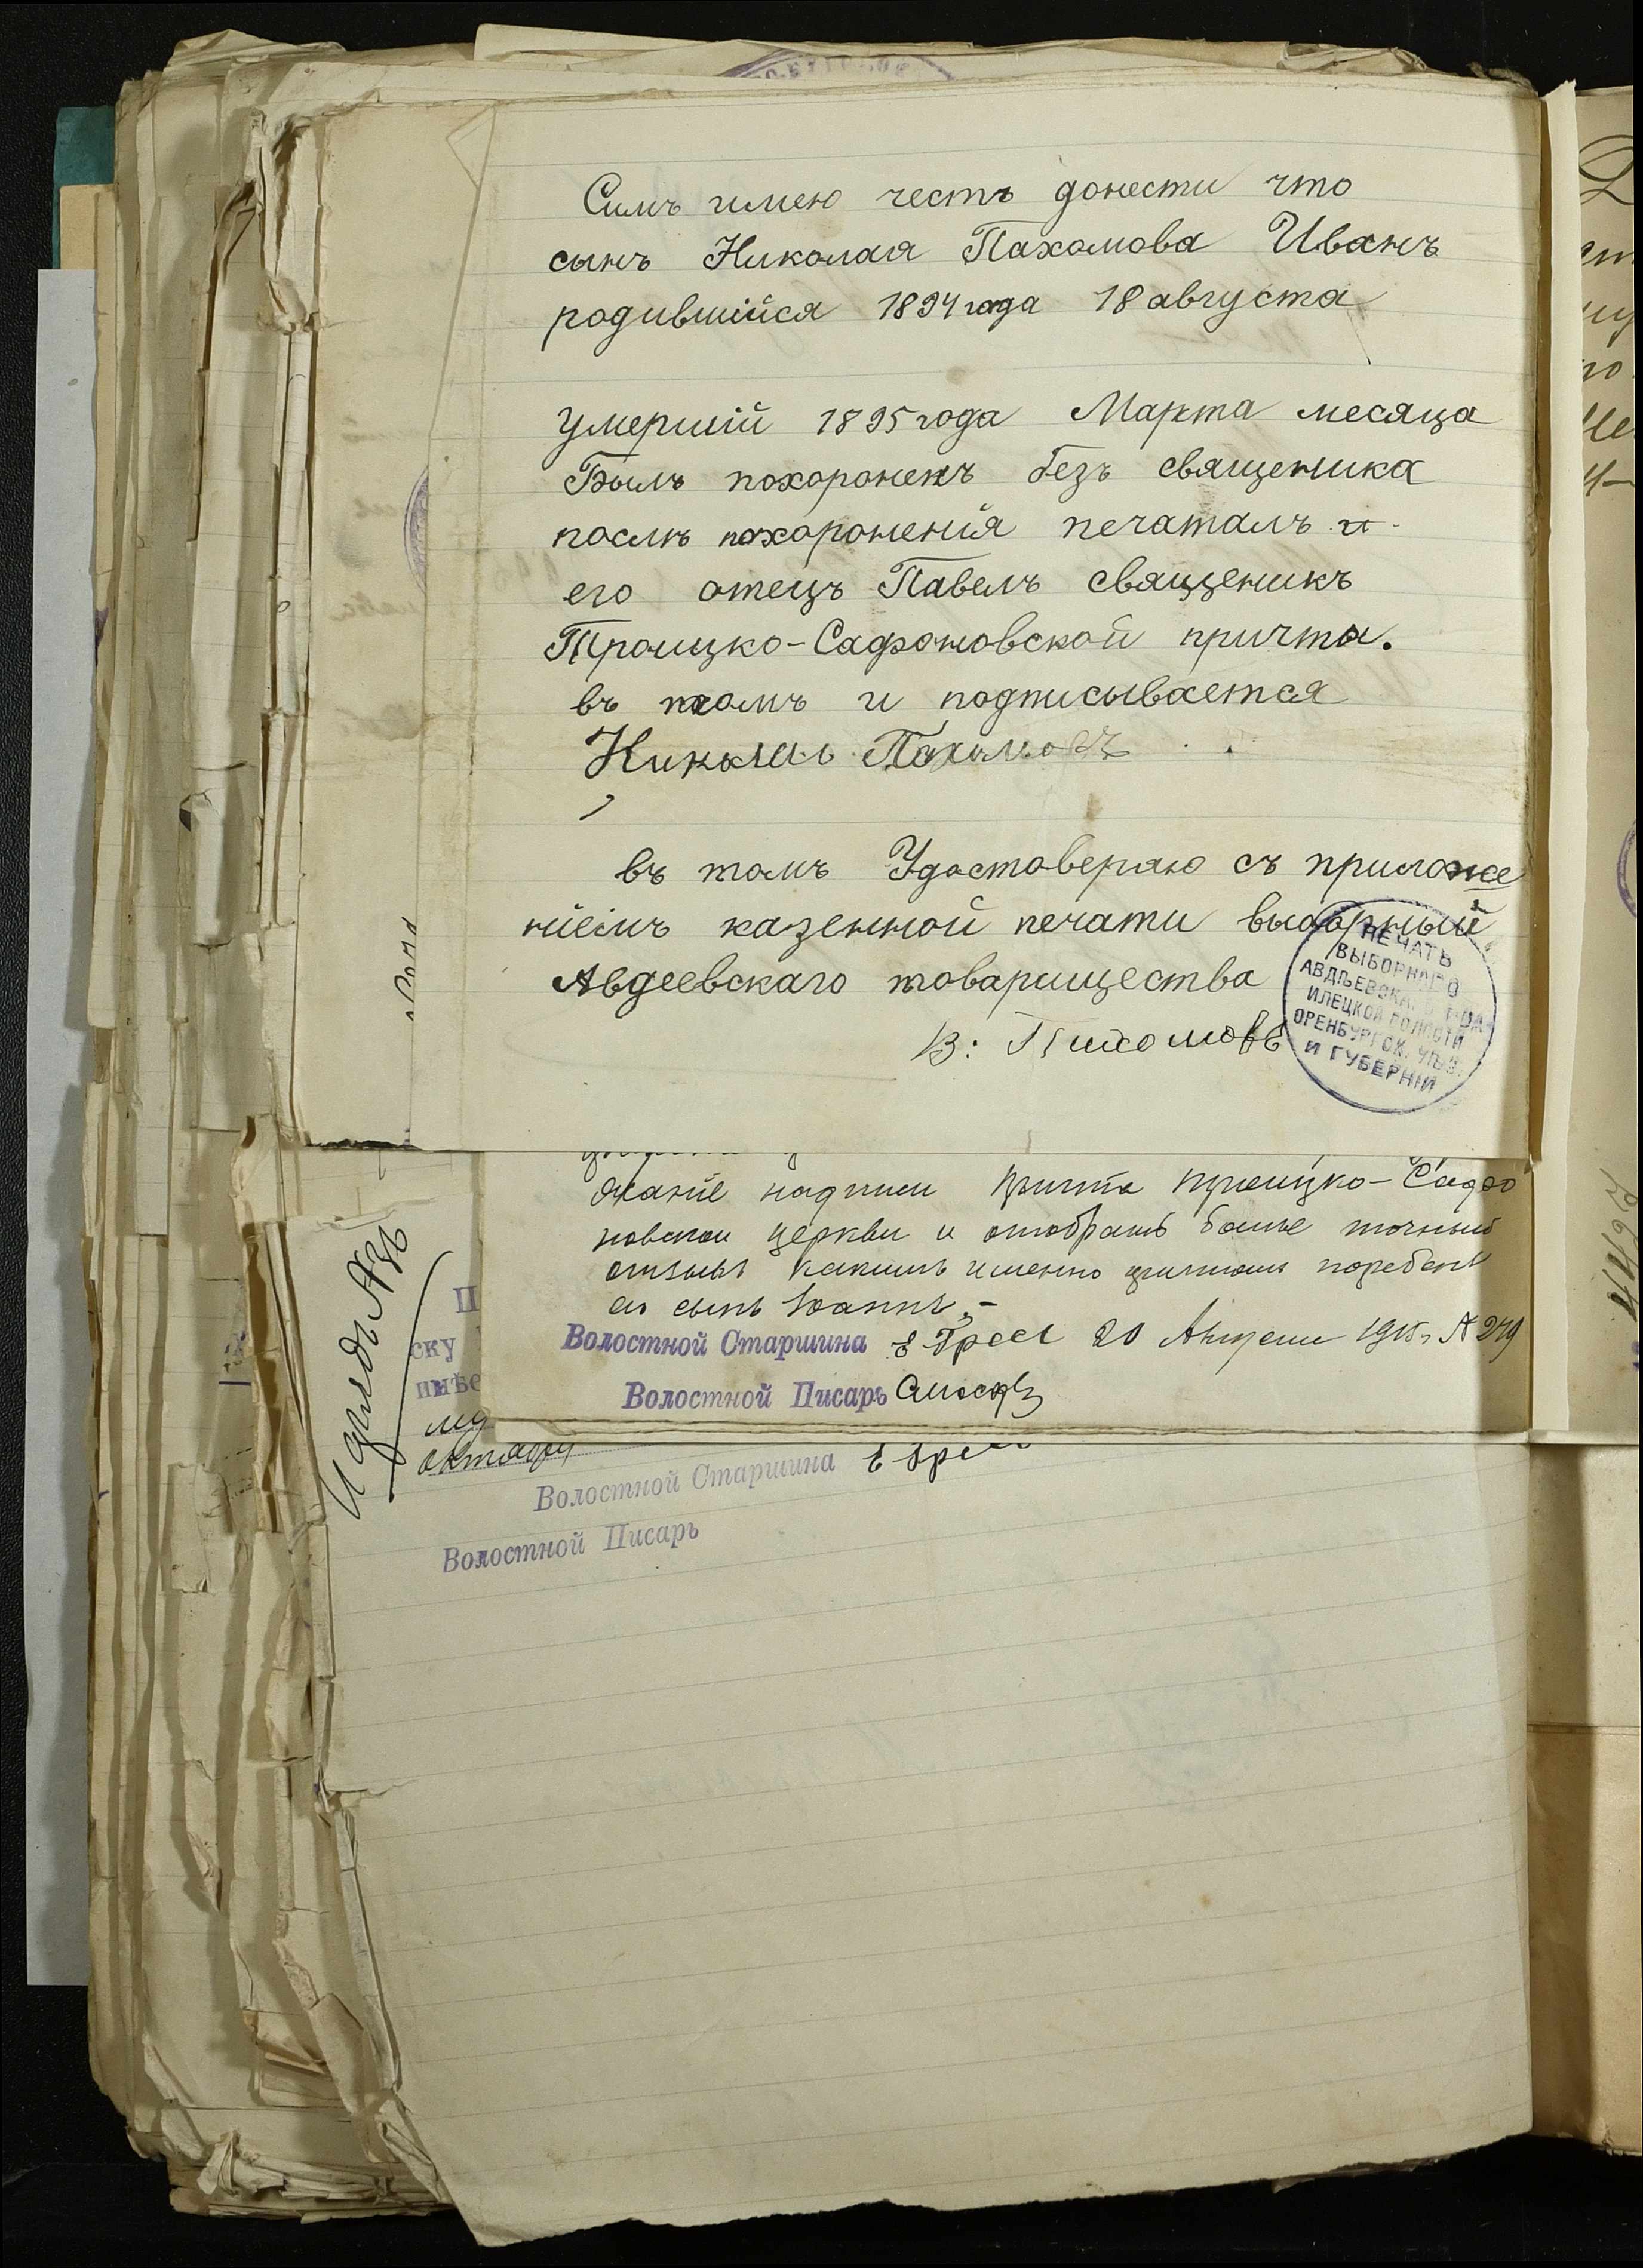 Симъ имею честь донести что
сынъ Николая Пахомова Иванъ
родившійся 1894 года 18 августа
умершій 1895 года Марта месяца
Былъ похороненъ безъ священика
послѣ похоронения печаталъ и
его отецъ Павелъ священикъ
Троицко-Сафоновской причта.
въ томъ и подписывается
Николай Пахомовъ
въ томъ Удостоверяю съ приложе
ніемъ казенной печати выборный
Авдеевскаго товарищества
В: Пахомовъ
ПЕЧАТЬ
ВЫБОРНАГО
АВДѢЕВСКАГО Т-ВА
ИЛЕЦКОЙ ВОЛОСТИ
ОРЕНБУРГСК. УѢЗ.
И ГУБЕРНІИ
жаніе надписи причта Троицко-Сафо
новской церкви и отобрать более точный
отзывъ какимъ именно причтомъ погребенъ
его сынъ Іоаннъ,-
Волостной Старшина 20 Августа 1915 г № 279
Волостной Писарь
ску
октября
Волостной Старшина
Волостной Писарь